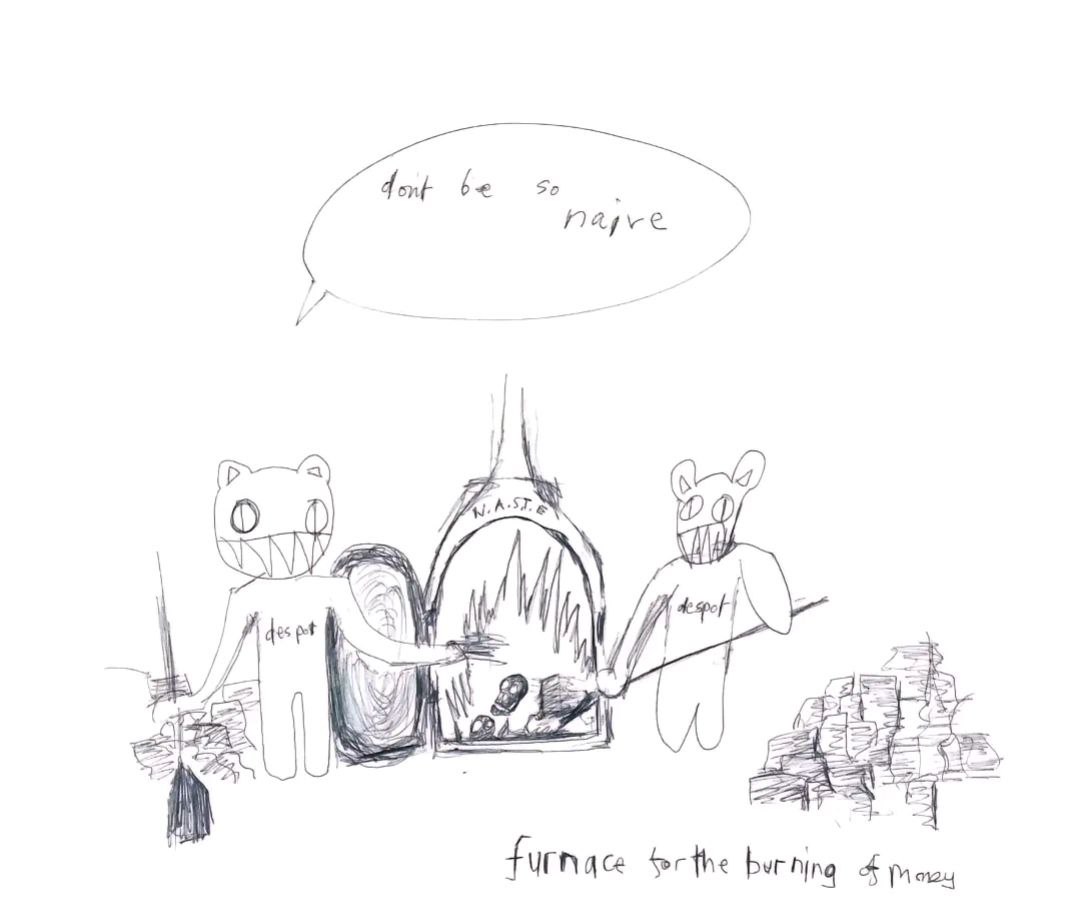 don't be so
naive
N.A.S.T.E
despot
despot
furnace for the burning of money